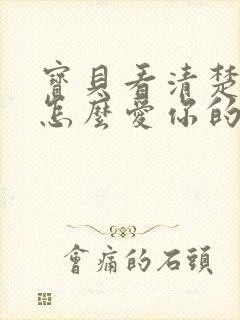 寶貝看清楚
怎麼愛你的
會痛的石頭